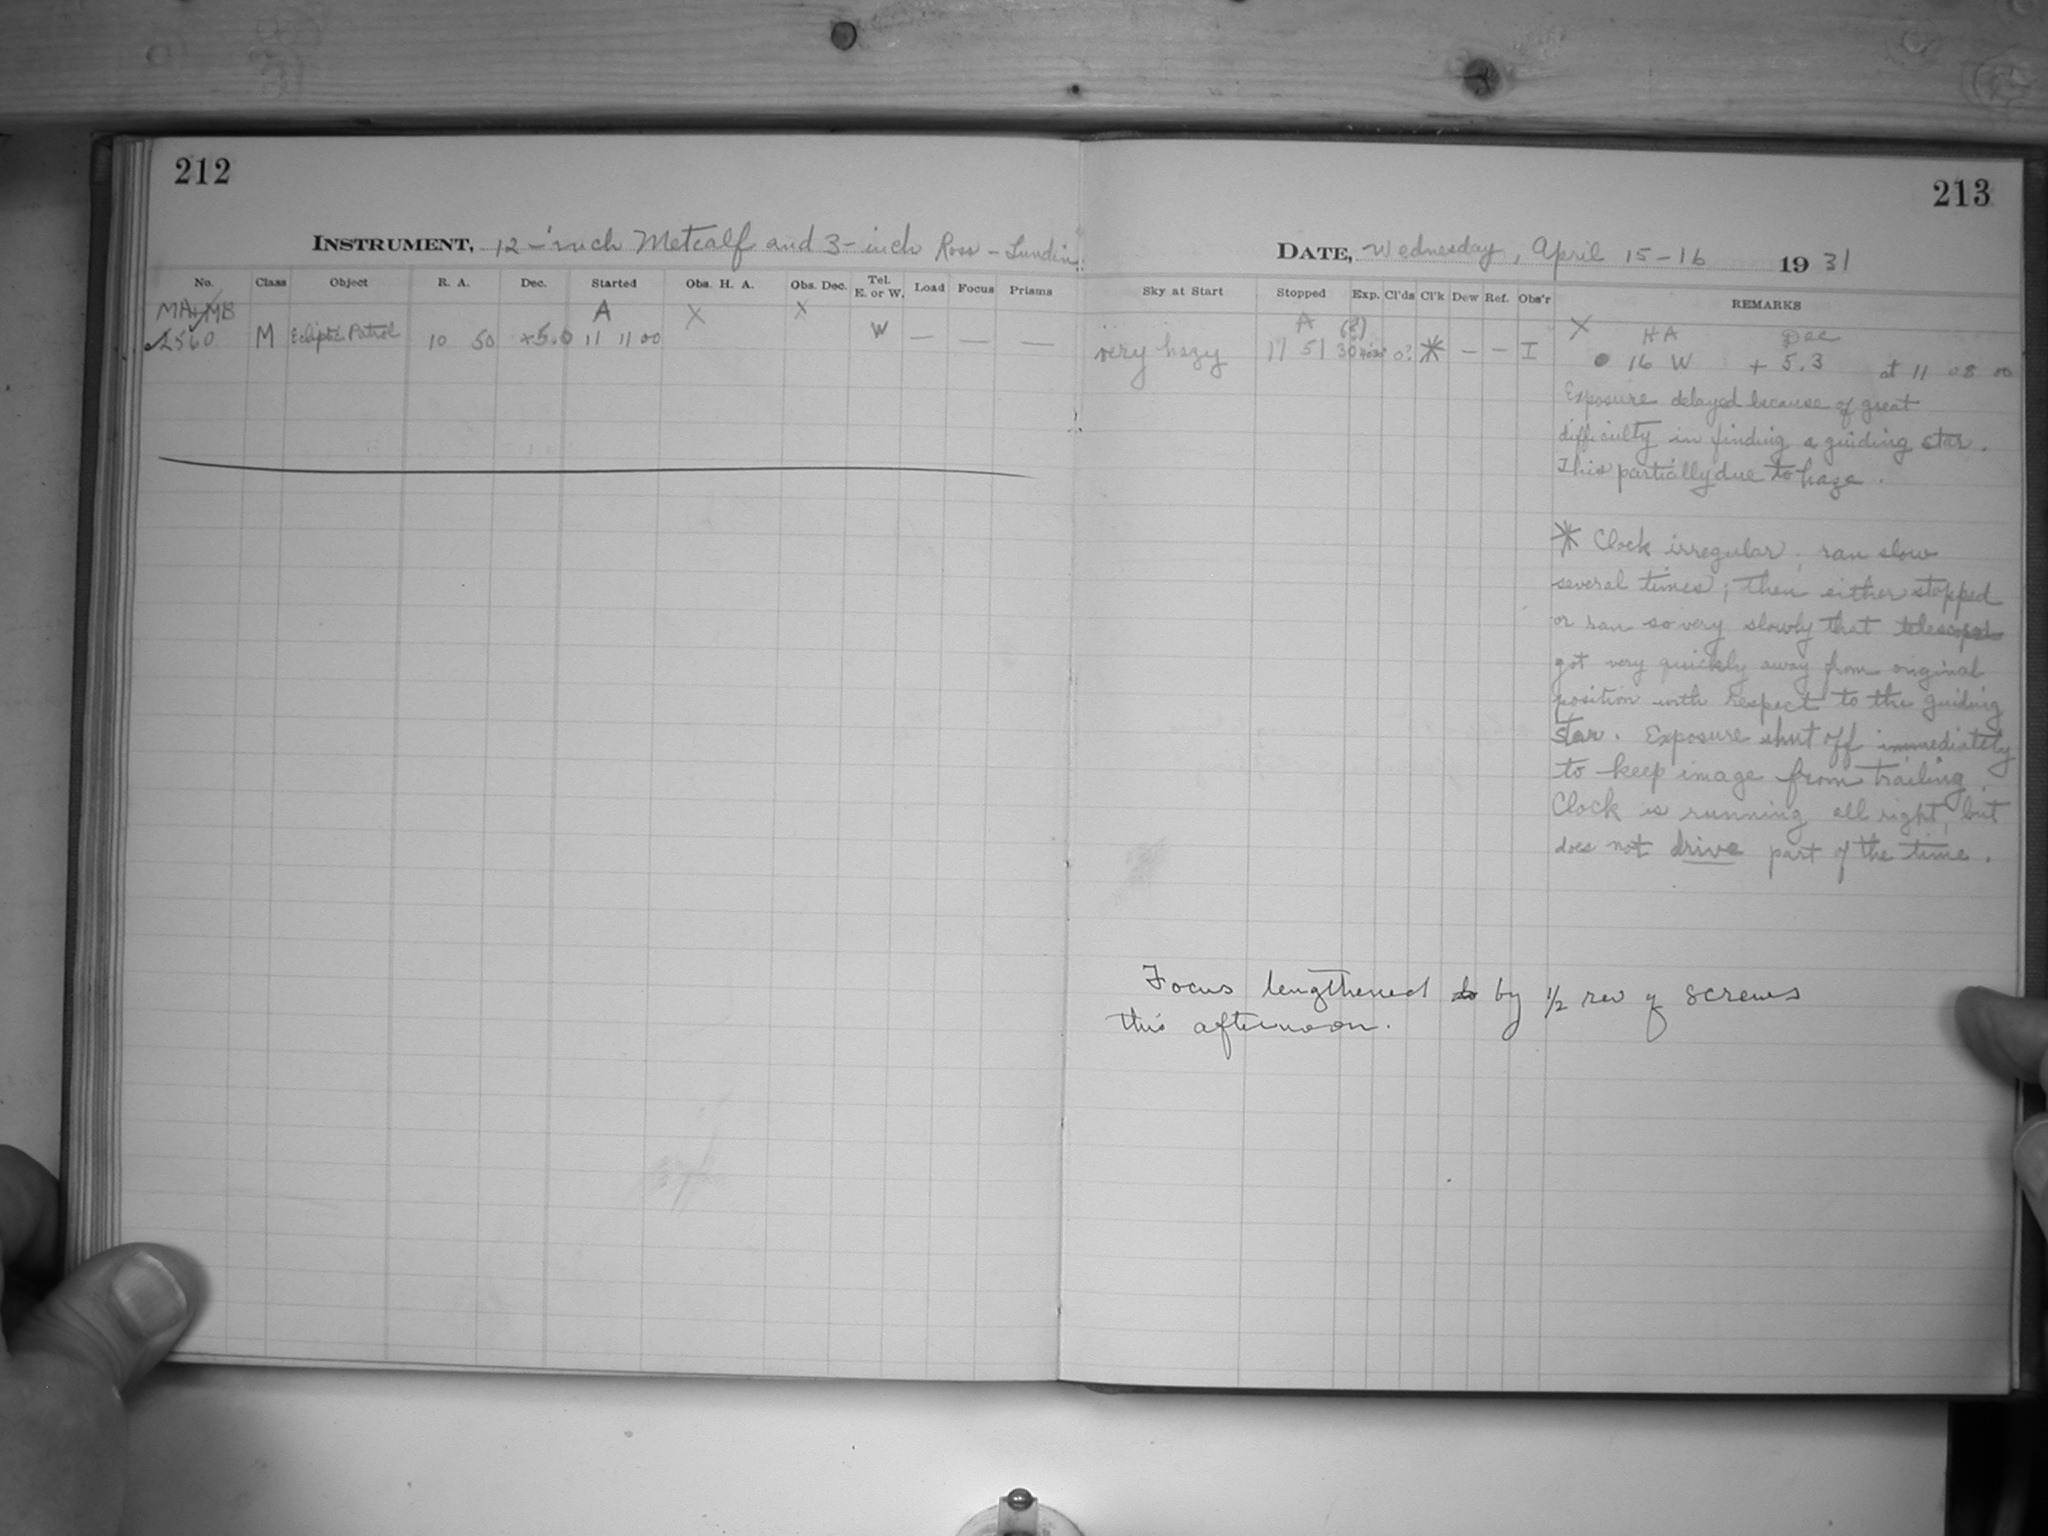 212
213
INSTRUMENT, 12-inch Metcalf and 3-inch Ross-Lundin
DATE, Wednesday, April 15-16 1931
No. Class Object R. A. Dec. Started Obs. H. A. Obs. Dec. Tel. E. or W. Load Focus Prisms
Sky at Start Stopped Exp. Cl'ds Cl'k Dew Ref. Obs'r REMARKS
MA+MB A X X
A (?) X HA Dec
2560 M Ecliptic Patrol 10 50 +5.0 11 11 00 W — — —
very hazy 11 51 30 0? * — — I 0 16 W + 5.3 at 11 08 00
Exposure delayed because of great
difficulty in finding a guiding star.
This partially due to haze.
* Clock irregular, ran slow
several times; then either stopped
or ran so very slowly that telescope
got very quickly away from original
position with respect to the guiding
star. Exposure shut off immediately
to keep image from trailing.
Clock is running all right, but
does not drive part of the time.
Focus lengthened by 1/2 rev of screws
this afternoon.